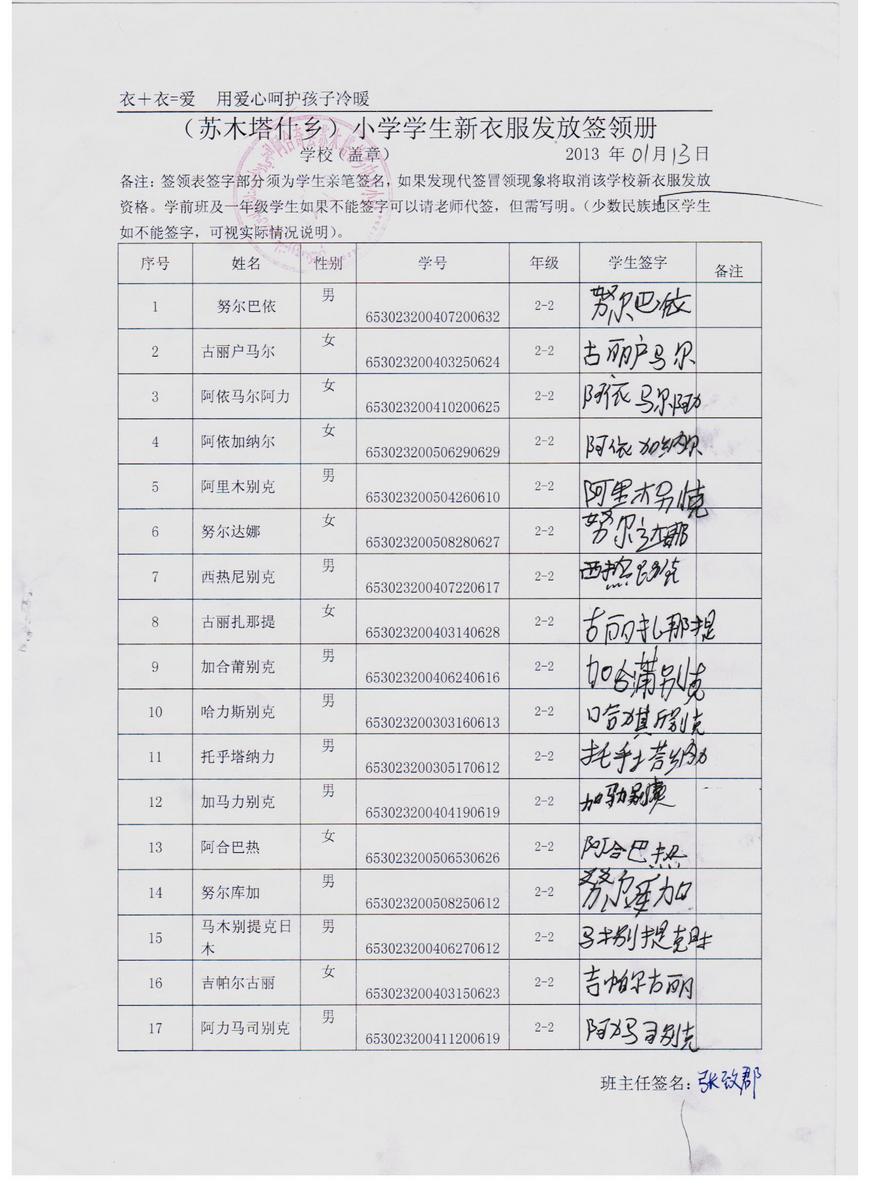 衣＋衣=爱 用爱心呵护孩子冷暖
（苏木塔什乡）小学学生新衣服发放签领册
学校（盖章） 2013 年 01月 13日
备注：签领表签字部分须为学生亲笔签名，如果发现代签冒领现象将取消该学校新衣服发放
资格。学前班及一年级学生如果不能签字可以请老师代签，但需写明。（少数民族地区学生
如不能签字，可视实际情况说明）。
序号 姓名 性别 学号 年级 学生签字 备注
1 努尔巴依 男 653023200407200632 2-2 努尔巴依
2 古丽户马尔 女 653023200403250624 2-2 古丽户马尔
3 阿依马尔阿力 女 653023200410200625 2-2 阿依马尔阿力
4 阿依加纳尔 女 653023200506290629 2-2 阿依加纳尔
5 阿里木别克 男 653023200504260610 2-2 阿里木别克
6 努尔达娜 女 653023200508280627 2-2 努尔达娜
7 西热尼别克 男 653023200407220617 2-2 西热尼别克
8 古丽扎那提 女 653023200403140628 2-2 古丽扎那提
9 加合莆别克 男 653023200406240616 2-2 加合莆别克
10 哈力斯别克 男 653023200303160613 2-2 哈力斯别克
11 托乎塔纳力 男 653023200305170612 2-2 托乎塔纳力
12 加马力别克 男 653023200404190619 2-2 加马力别克
13 阿合巴热 女 653023200506530626 2-2 阿合巴热
14 努尔库加 男 653023200508250612 2-2 努尔库加
15 马木别提克日木 男 653023200406270612 2-2 马木别提克日木
16 吉帕尔古丽 女 653023200403150623 2-2 吉帕尔古丽
17 阿力马司别克 男 653023200411200619 2-2 阿力马司别克
班主任签名：张致郡